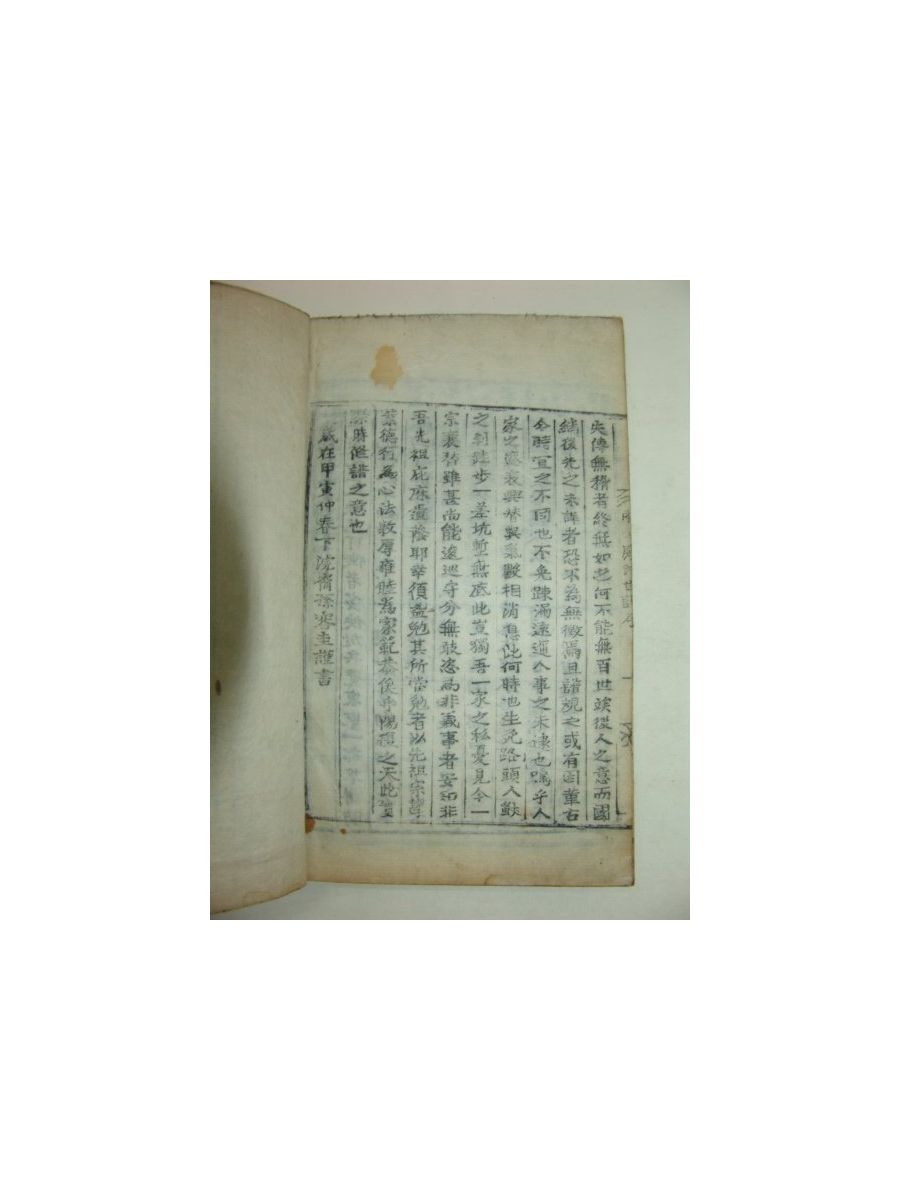 失傳無稽者終無如之何不能無百世竢後人之意而國
緖後先之未詳者恐不為無徵焉且譜規之或有因董古
今時宜之不同也不免踈漏遠邇人事之未逮也嗚乎人
家之盛衰興替與氣數相消息此何時也生免路頭人獸
之判跬步一差坑塹無底此豈獨吾一家之私憂見今一
宗衰替雖甚尚能逡巡守分無敢恣為非義事者妥和非
吾先祖庇庥遺蔭耶幸須益勉其所當勉者以先祖宗學
業德行為心法敦厚雍睦為家範恭俟乎陽復之天此實
時作譜之意也
歲在甲寅仲春下沈齋孫 圭謹書
世譜序 一